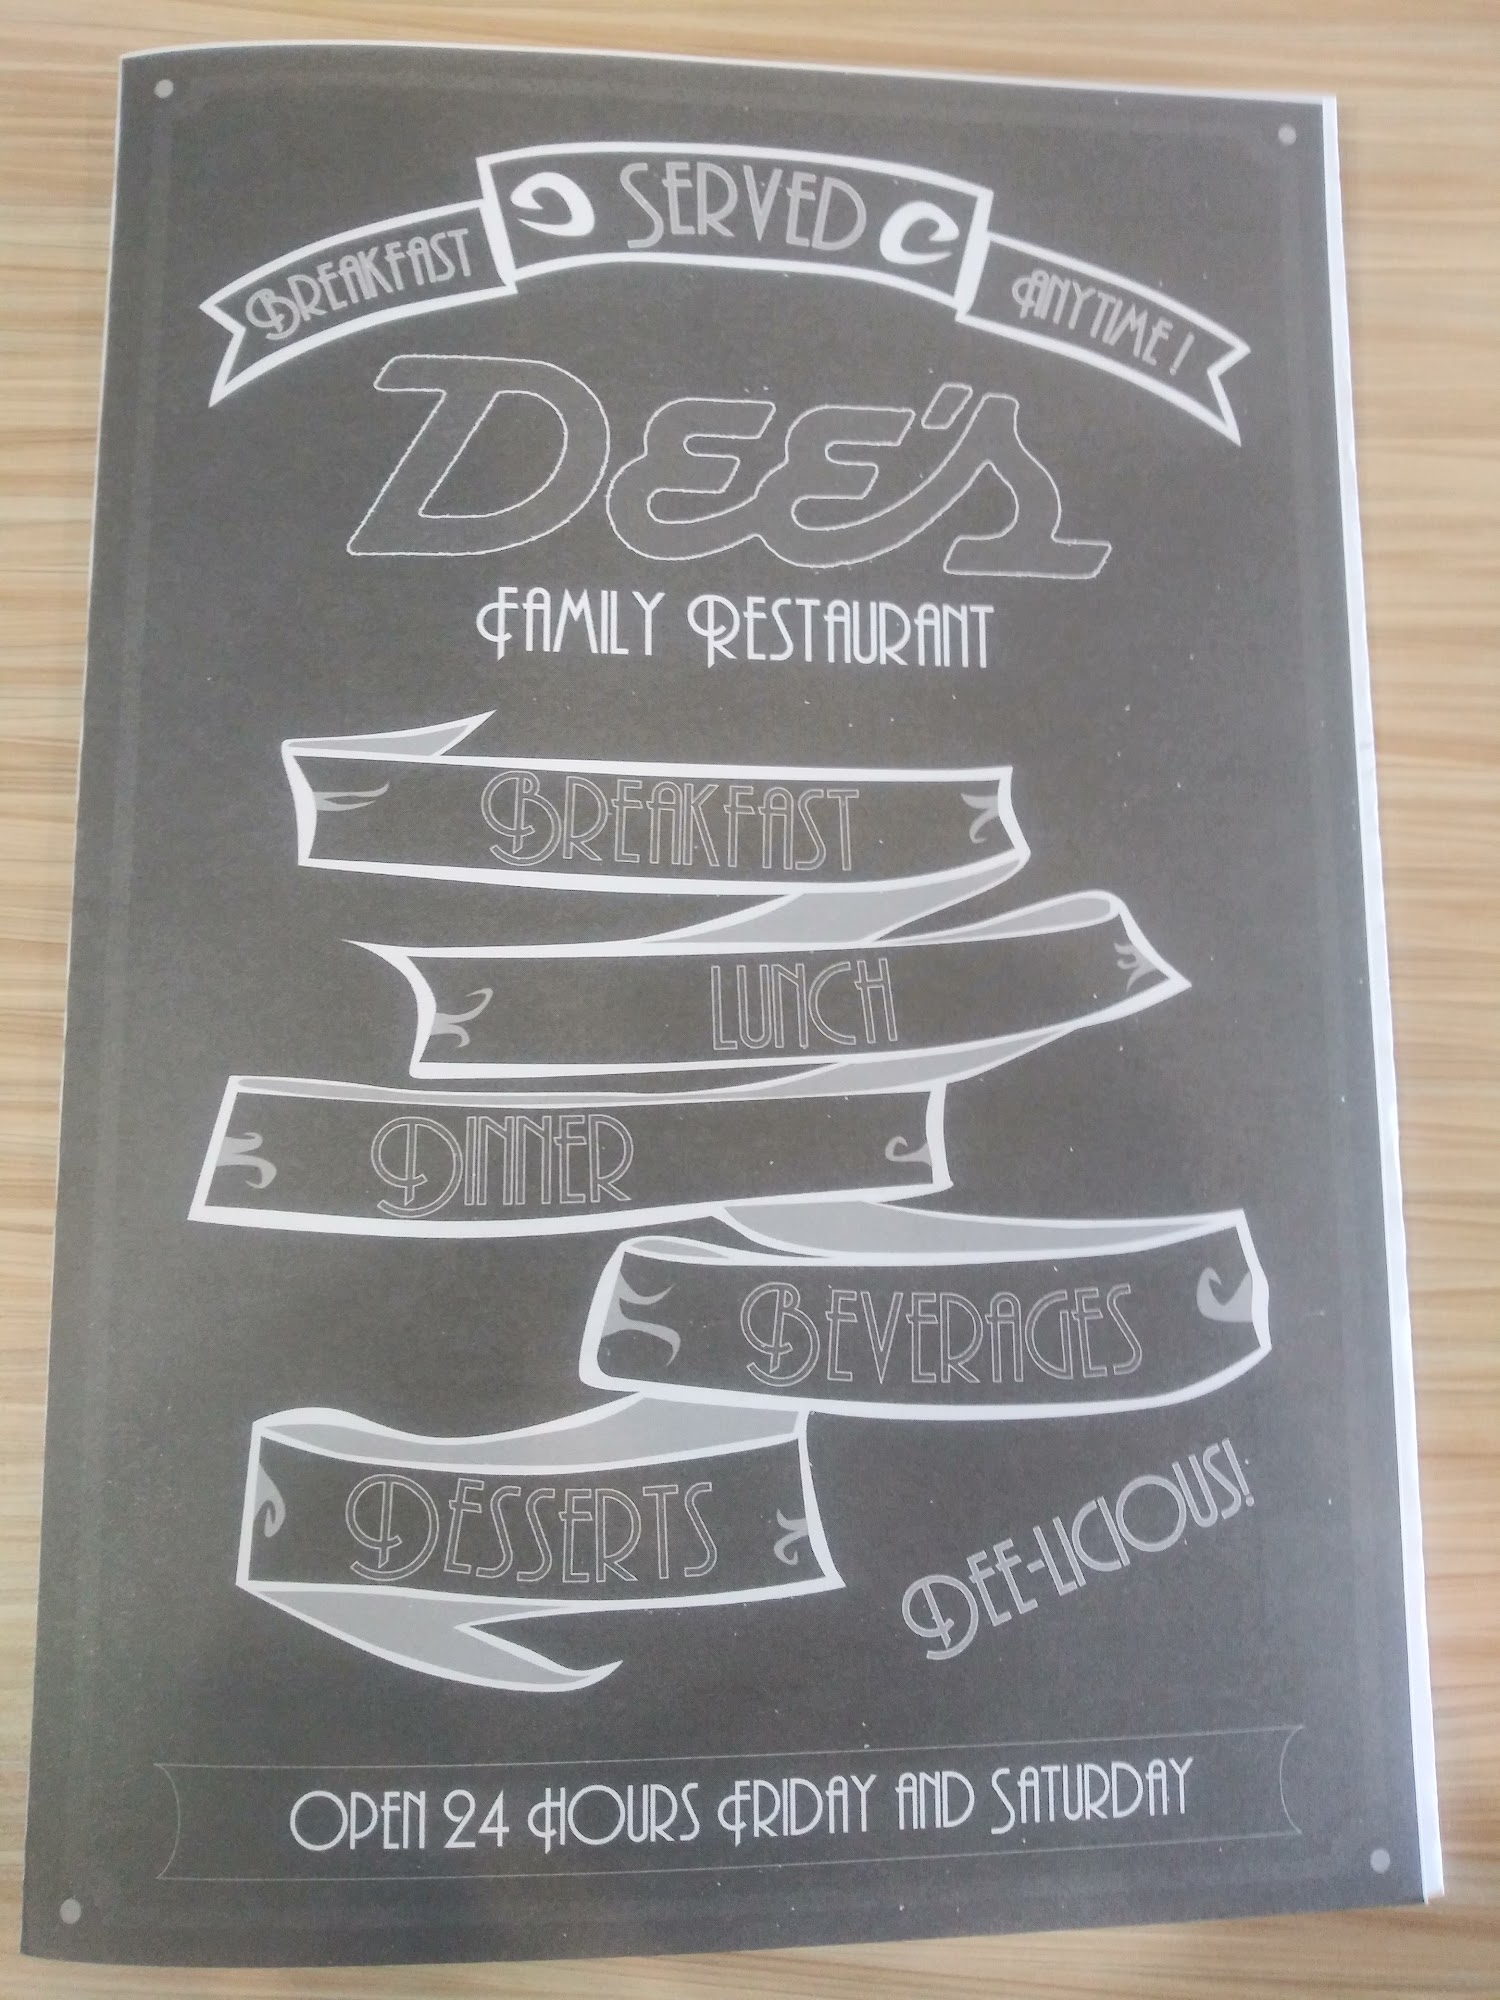 Breakfast Served Anytime!
Dee's
Family Restaurant
Breakfast
Lunch
Dinner
Beverages
Desserts
Dee-licious!
Open 24 Hours Friday and Saturday